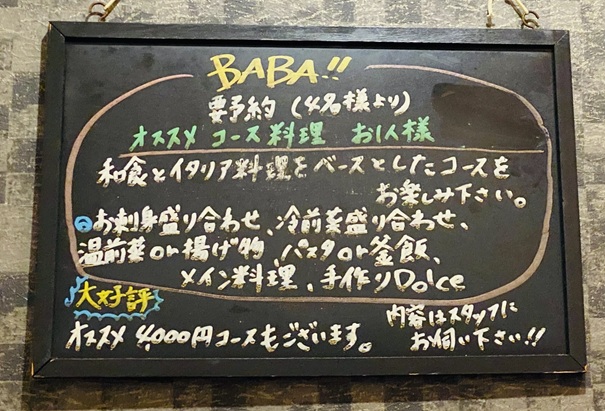 BABA!!
要予約（4名様より）
オススメ コース料理 お1人様
和食とイタリア料理をベースとしたコースを
お楽しみ下さい。
お刺身盛り合わせ、冷前菜盛り合わせ、
温前菜or揚げ物、パスタor釜飯、
メイン料理、手作りDolce
大好評
オススメ 4,000円コースもございます。
内容はスタッフに
お伺い下さい!!